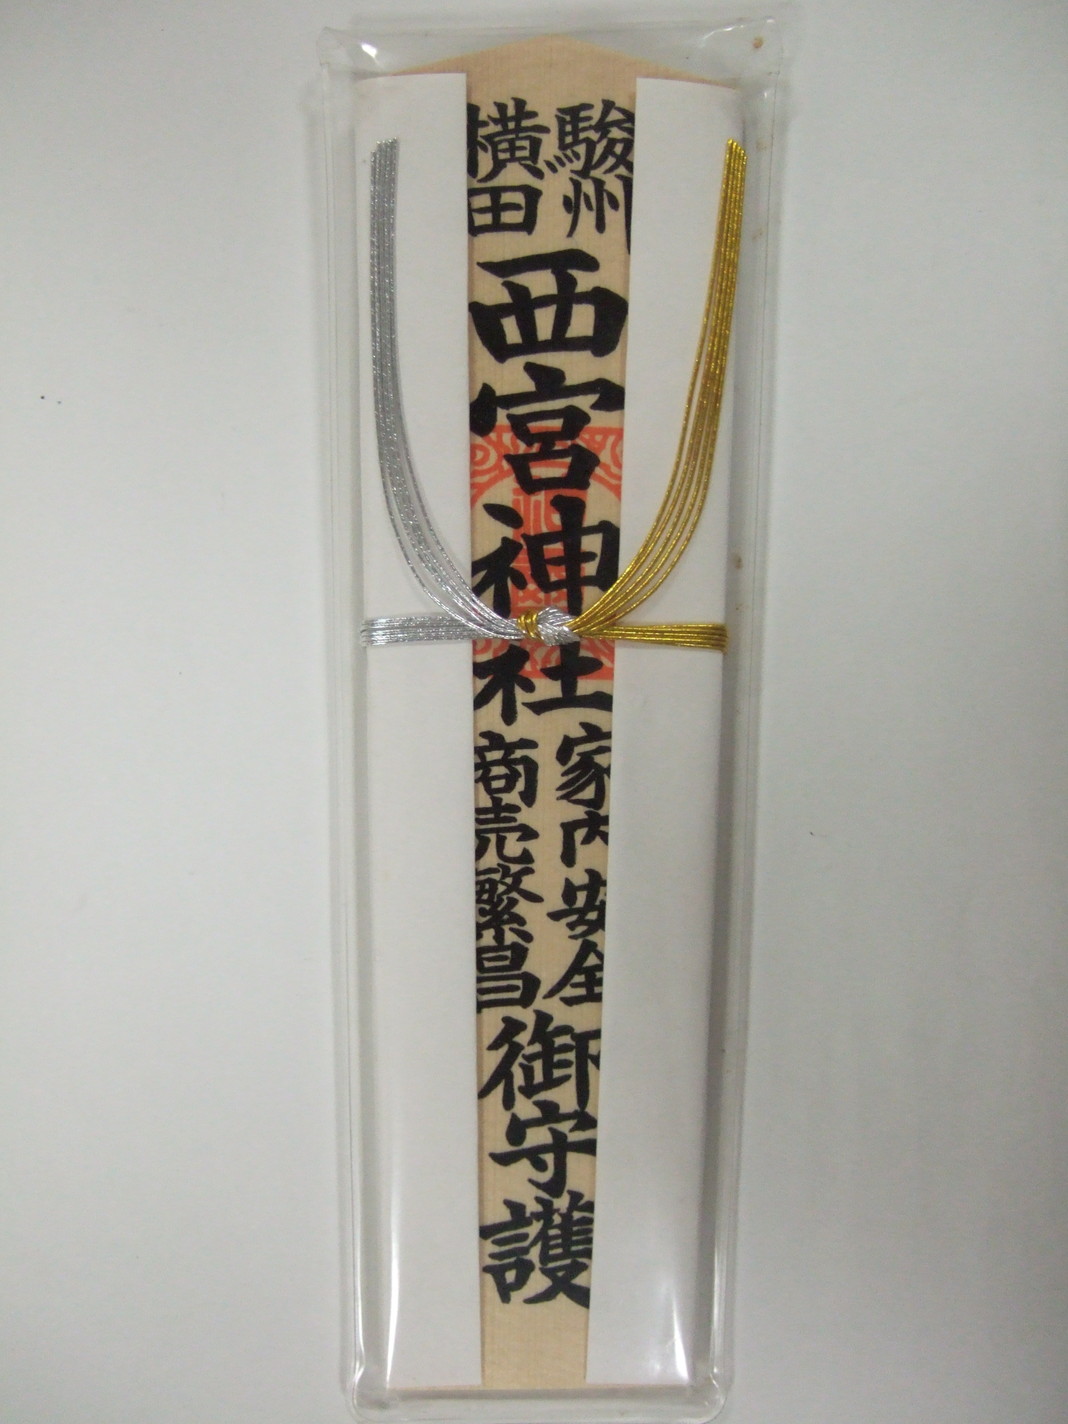 駿州
横田
西宮神社
家内安全
商売繁昌
御守護